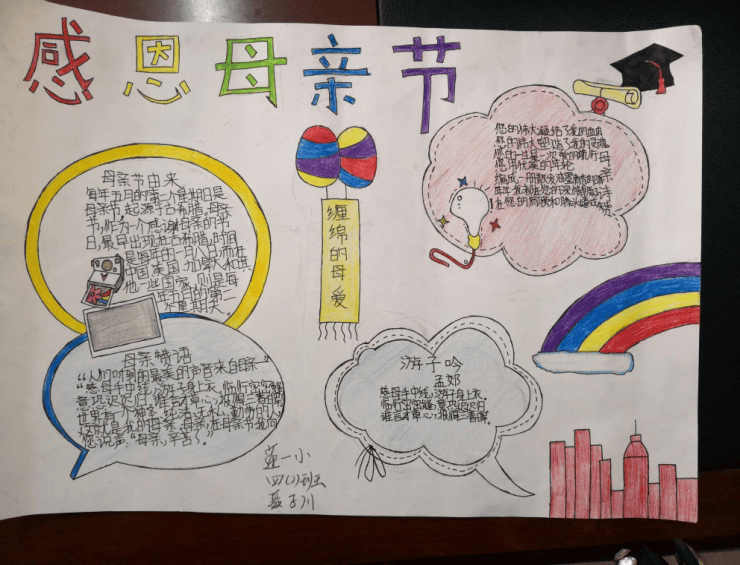 感恩母亲节
母亲节由来
每年五月的第二个星期日是
母亲节,起源于古希腊,母亲
节,作为一个感谢母亲的节
日,最早出现在古希腊,时间
是每年的一月八日,而在
中国、美国、加拿大和其
他一些国家,则是每
年五月的第二
个星期天。
缠绵的母爱
您的伟大凝结了我的血肉
您的伟大塑造了我的灵魂
您的一生是一次爱的航行
您用优美的年轮
编成一册散发油墨清香的日历
年年我都在您的深情里度过
在您的肩膀和膝头嬉戏
母亲
母亲特语
“人们听到的最美的声音来自母亲”
“慈母手中线,游子身上衣。临行密密缝,
意恐迟迟归。谁言寸草心,报得三春晖
您说声:“母亲,辛苦了。”
游子吟
孟郊
慈母手中线,游子身上衣。
临行密密缝,意恐迟迟归。
谁言寸草心,报得三春晖。
莲一小
四(1)班
聂子川